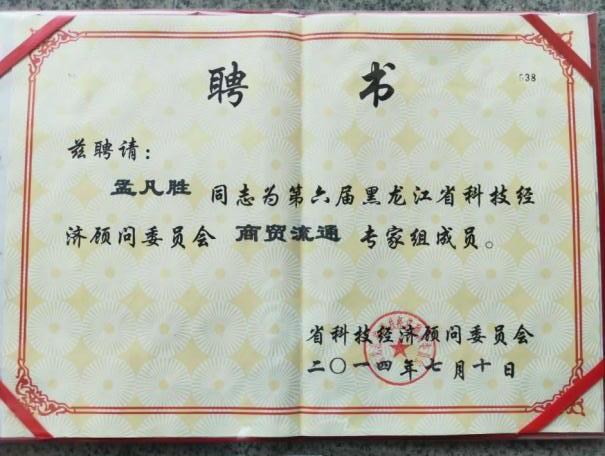 聘 书
538
兹聘请：
孟凡胜 同志为第六届黑龙江省科技经
济顾问委员会 商贸流通 专家组成员。
省科技经济顾问委员会
二〇一四年七月十日